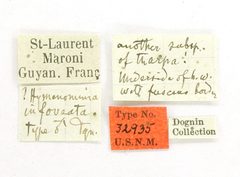 St-Laurent
Maroni
Guyan. Franç
another subsp.
of tharpa:
Underside of h.w.
with fuscous bord.
? Hymenomima
infovsata
type ♂ Dgn.
Type No.
32935
U.S.N.M.
Dognin
Collection